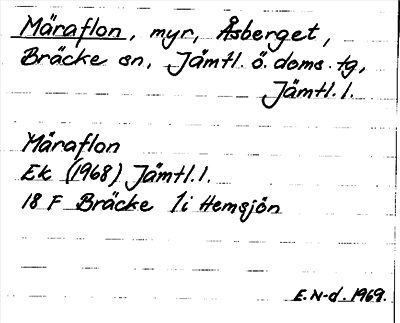 Märaflon, myr, Åsberget,
Bräcke sn, Jämtl. ö. doms. tg,
Jämtl. l.
Märaflon
Ek (1968) Jämtl. l.
18 F Bräcke 1i Hemsjön
E. N-d. 1969.